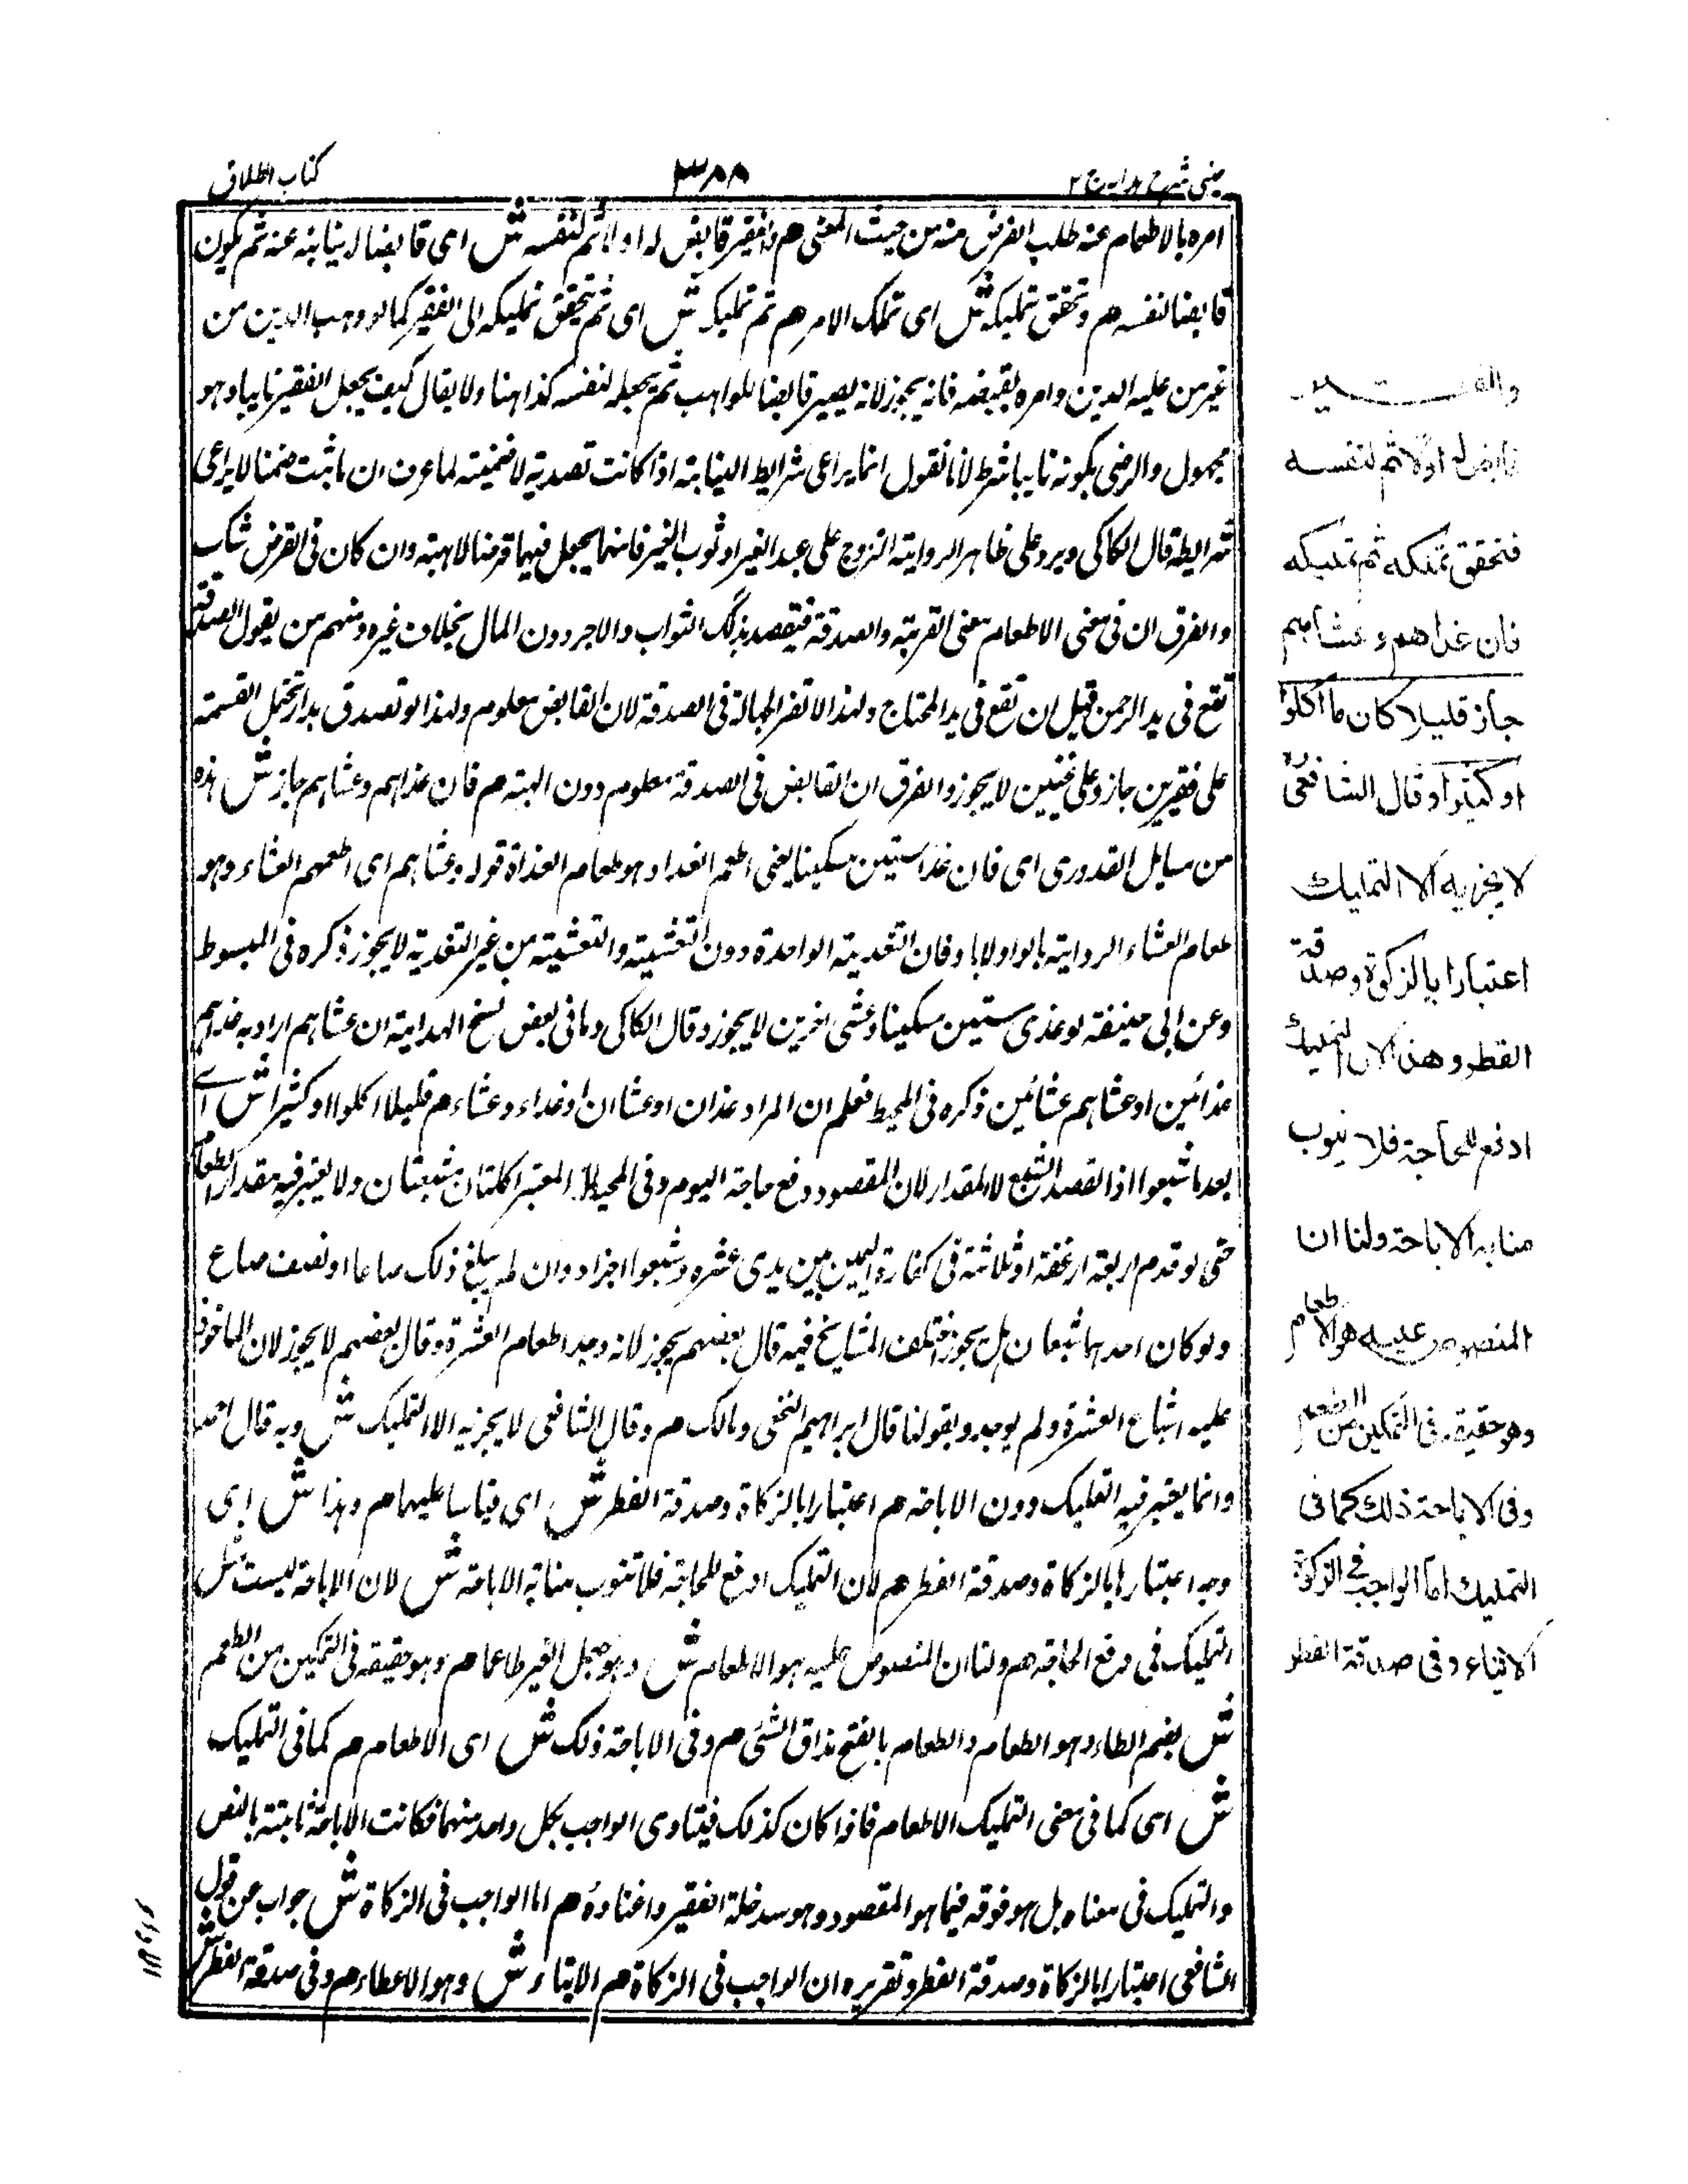 عينى شرح هدايه ج ٢
٣٨٨
كتاب الطلاق
امره بالاطعام عنه طلب القرض منه من حيث المعنى هم والفقير قابض له اولا ثم لنفسه ش اى قابضا له نيابة عنه ثم يكون
قابضا لنفسه هم وتحقق تملكه ش اى تملك الامر هم ثم تمليكه ش اى ثم يتحقق تمليكه الى الفقير كما لو وهب الدين من
غير من عليه الدين وامره بقبضه فانه يجوز لانه يصير قابضا للواهب ثم يجعله لنفسه كذا هنا ولا يقال كيف يجعل الفقير نايبا وهو
مجهول والرضى بكونه نايبا شرط لانا نقول انما يراعى شرايط النيابة اذا كانت قصدية لا ضمنية لما عرف ان ما ثبت ضمنا لا يراعى
شرايطه قال الكاكى ويرد على ظاهر الرواية التزوج على عبد الغير او ثوب الغير فانهما يجعل فيهما قرضا لا هبة وان كان فى القرض شك
والفرق ان فى معنى الاطعام معنى القربة والصدقة فيقصد بذلك الثواب والاجر دون المال بخلاف غيره ومنهم من يقول الصدقة
تقع فى يد الرحمن قبل ان تقع فى يد المحتاج ولهذا لا تضر الجهالة فى الصدقة لان القابض معلوم ولهذا لو تصدق بدار تحتمل القسمة
على فقيرين جاز وعلى غنيين لا يجوز والفرق ان القابض فى الصدقة معلوم دون الهبة هم فان غداهم وعشاهم جاز ش هذه
من مسايل القدورى اى فان غدا ستين مسكينا يعنى اطعم الغداء وهو طعام الغداة قوله وعشاهم اى اطعمهم العشاء وهو
طعام العشاء الرواية بالواو لا باو فان التغدية الواحدة دون التعشية والتعشية من غير التغدية لا يجوز ذكره فى المبسوط
وعن ابى حنيفة لو غدى ستين مسكينا وعشى اخرين لا يجوز وقال الكاكى وما فى بعض نسخ الهداية ان عشاهم اراد به غداهم
غدائين او عشاهم عشائين ذكره فى المحيط فعلم ان المراد غذان او عشا ان او غداء وعشاء هم قليلا اكلوا او كثيرا ش اے
بعد ما شبعوا اذا القصد الشبع لا المقدار لان المقصود دفع حاجة اليوم وفى المحيط المعتبر اكلتان مشبعتان ولا يعتبر فيه مقدار الطعام
حتى لو قدم اربعة ارغفة او ثلاثة فى كفارة اليمين بين يدى عشره وشبعوا اجزاه وان لم يبلغ ذلك صاعا او نصف صاع
ولو كان احدهما شبعان هل يجوز اختلف المشايخ فيه قال بعضهم يجوز لانه وجد اطعام العشرة وقال بعضهم لا يجوز لان الماخوذ
عليه اشباع العشرة ولم يوجد وبقولنا قال ابراهيم النخعى ومالك هم وقال الشافعى لا يجزيه الا التمليك ش وبه قال احمد
وانما يعتبر فيه التمليك دون الاباحة هم اعتبارا بالزكاة وصدقة الفطر ش اى قياسا عليهما هم وهذا ش اى
وجه اعتبارها بالزكاة وصدقة الفطر هم لان التمليك ادفع للحاجة فلا تنوب منابه الاباحة ش لان الاباحة ليست مثل
التمليك فى دفع الحاجة هم ولنا ان المنصوص عليه هو الاطعام ش وهو جعل الغير طاعما هم وهو حقيقه فى التمكين من الطعم
ش بضم الطاء وهو الطعام والطعام بالفتح مذاق الشئ هم وفى الاباحة ذلك ش اى الاطعام هم كما فى التمليك
ش اى كما فى معنى التمليك الاطعام فاذا كان كذلك فيتادى الواجب بكل واحد منهما فكانت الاباحة ثابتة بالنص
والتمليك فى معناه بل هو فوقه فيما هو المقصود وهو سد خلة الفقير واغناوه هم اما الواجب فى الزكاة ش جواب عن قول
الشافعى اعتبارا بالزكاة وصدقة الفطر وتقريره ان الواجب فى الزكاة هم الايتاء ش وهو الاعطاء هم وفى صدقة الفطر ش
والفقير
قابض له اولا ثم لنفسه
فتحقق تملكه ثم تمليكه
فان غداهم وعشاهم
جاز قليلا كان ما اكلوا
او كثيرا وقال الشافعى
لا يجزيه الا التمليك
اعتبارا بالزكوة وصدقة
الفطر وهذا لان التمليك
ادفع للحاجة فلا ينوب
منابه الاباحة ولنا ان
المنصوص عليه هو الاطعام
وهو حقيقة فى التمكين من الطعم
وفى الاباحة ذلك كما فى
التمليك اما الواجب فى الزكوة
الايتاء وفى صدقة الفطر